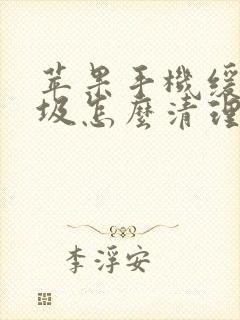 苹果手機緩
圾怎麼清理
李浮安